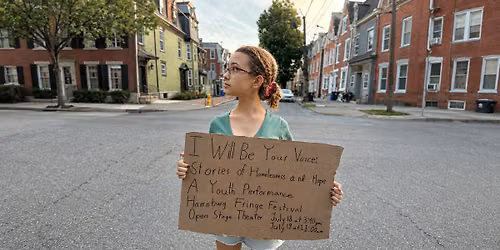 I Will Be Your Voices
Stories of Homelessness and Hope
A Youth Performance
Harrisburg Fringe Festival
Open Stage Theater July 18 at
July 19 at